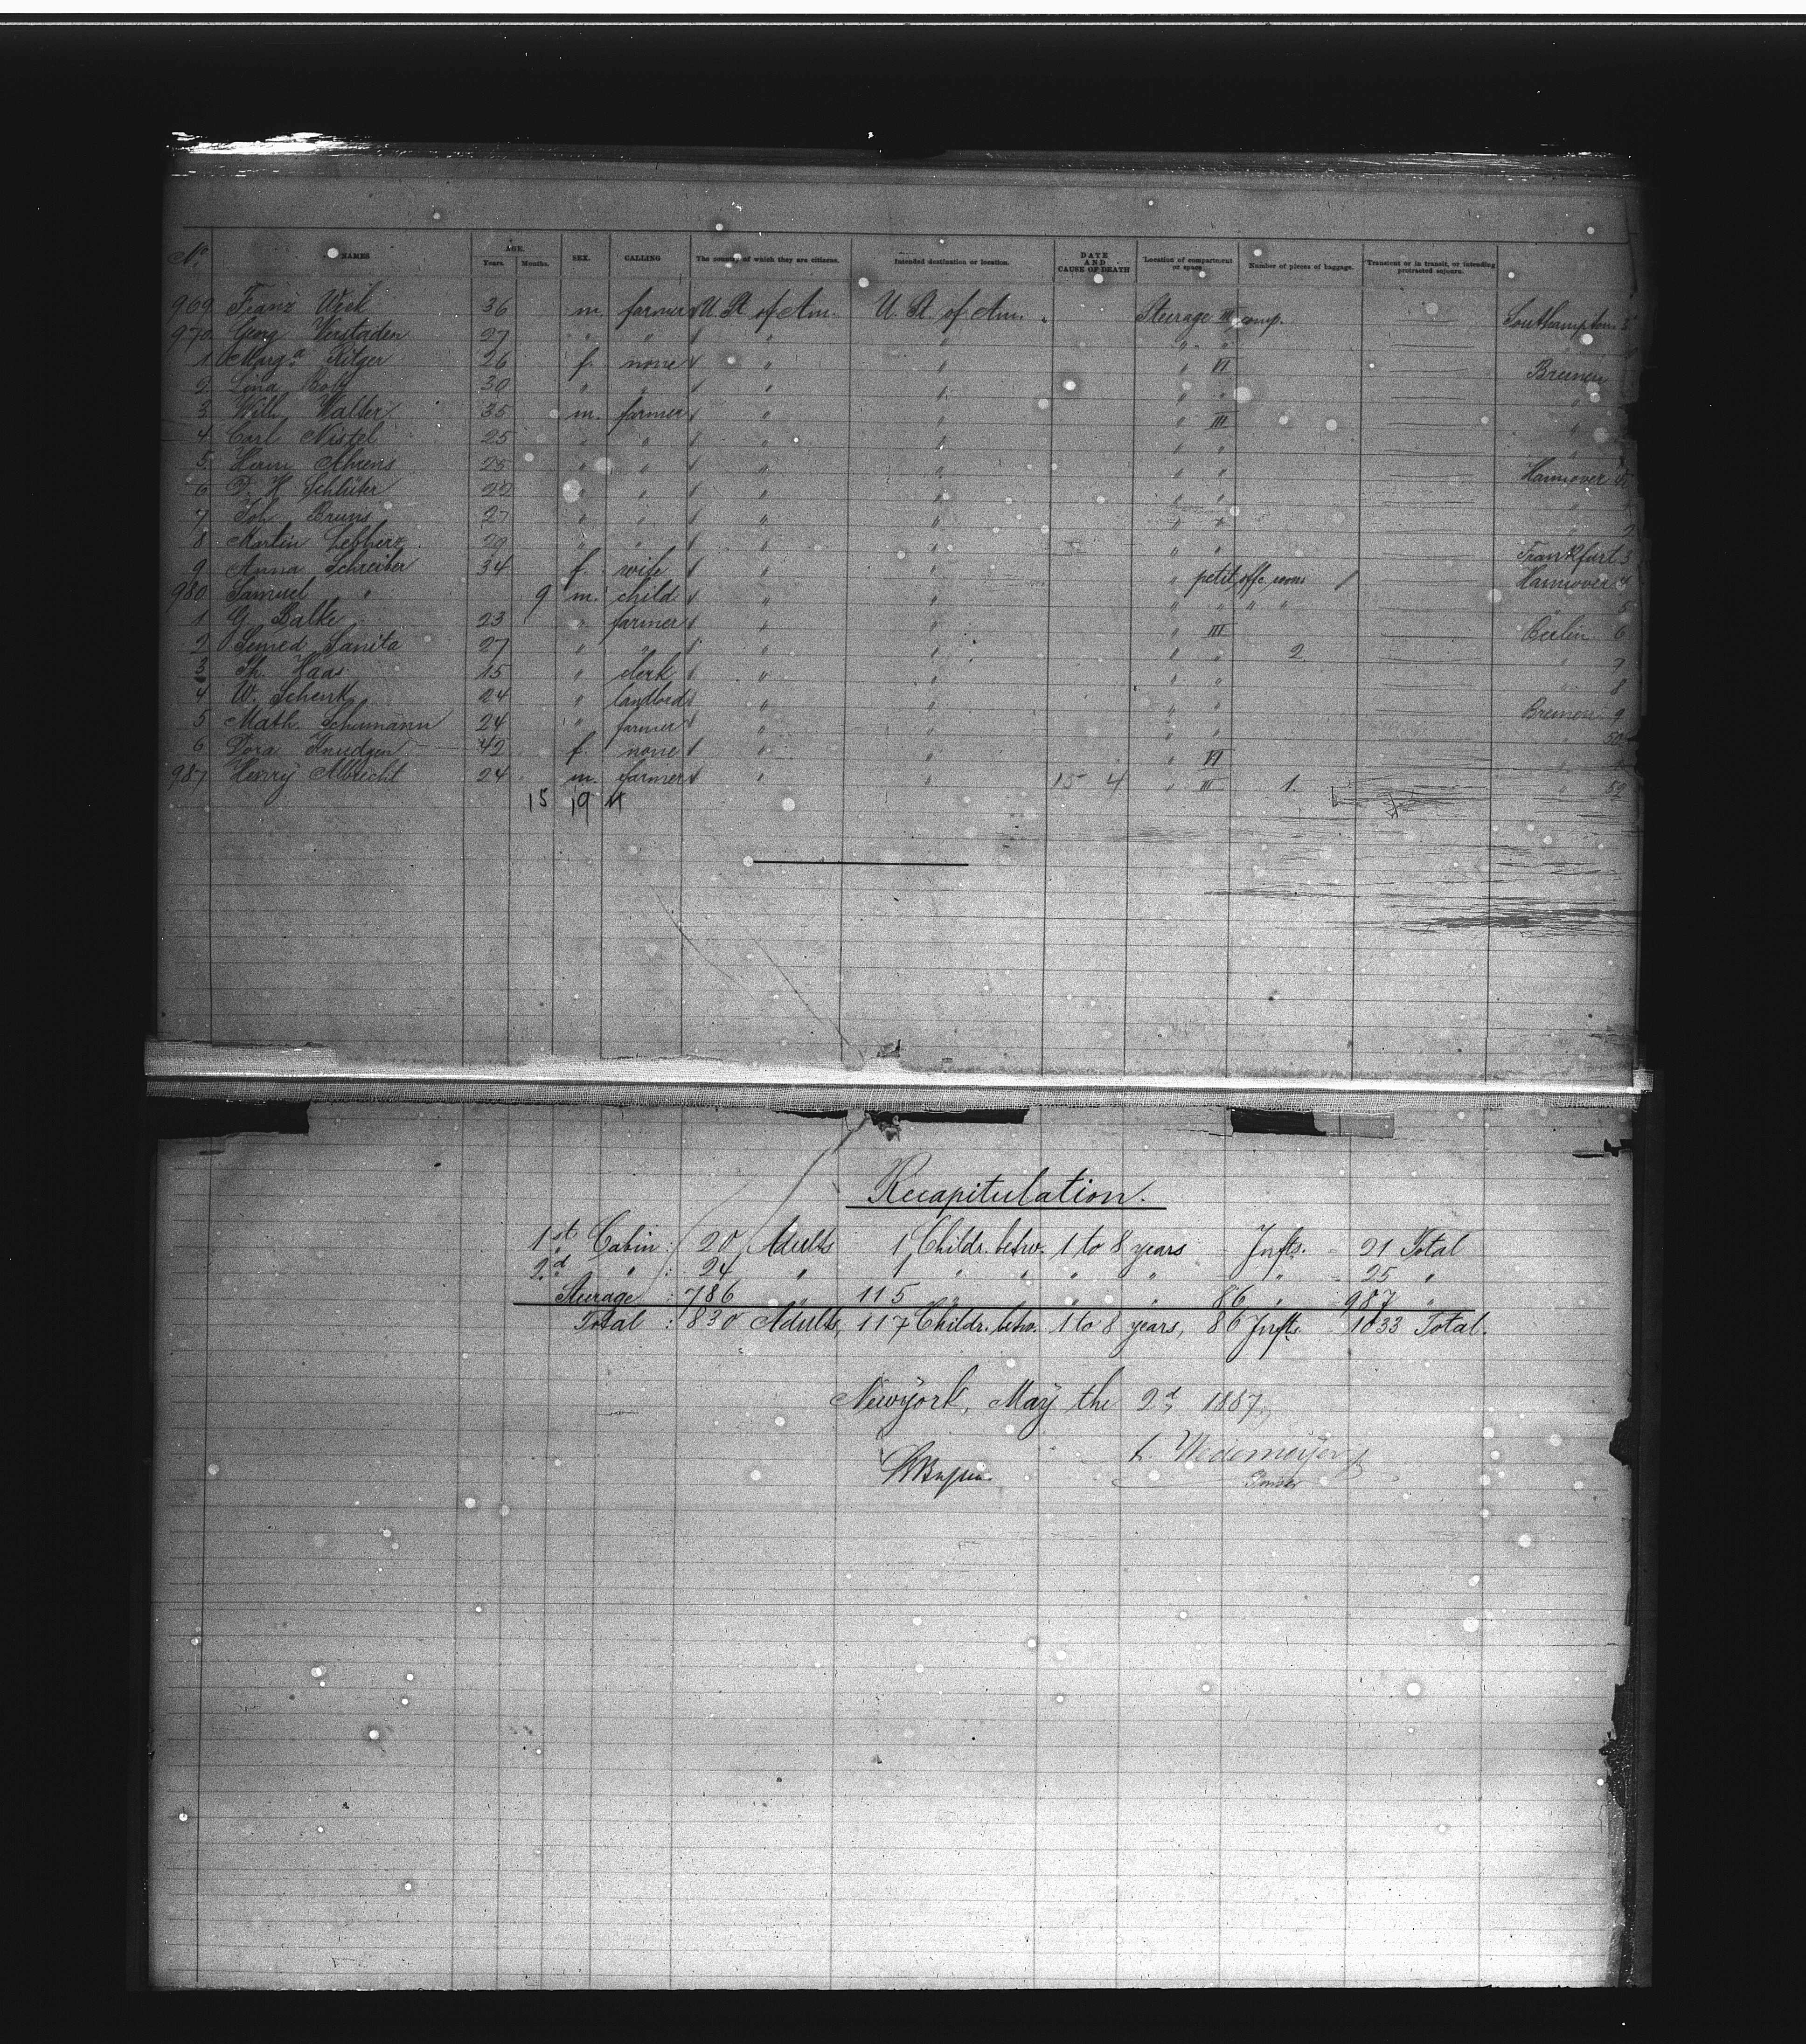 No. NAMES AGE. Years. Months. SEX. CALLING The country of which they are citizens. Intended destination or location. DATE AND CAUSE OF DEATH Location of compartment or space. Number of pieces of baggage. Transient or in transit, or intending protracted sojourn.
969 Franz 36 m. farmer U. St. of Am. U. St. of Am. Steerage III comp. Southampton
970 Georg Verstaden 27 " " " " " "
1 Marg.a Ritger 26 f. none " " " VI Bremen
2 Lina 30 " " " " " " "
3 Wilh. Walter 35 m. farmer " " " III "
4 Carl Nistel 25 " " " " " " "
5 Herm Ahrens 25 " " " " " " Hannover
6 D. H. Schlüter 22 " " " " " " "
7 Joh. Bruns 27 " " " " " " "
8 Martin Lebherz 29 " " " " " " Frankfurt 3
9 Anna Schreiber 34 f. wife " " " petit. offc. room / Hannover 4
980 Samuel " 9 m. child " " " " " " " 5
1 G. Balke 23 " farmer " " " III Berlin 6
2 Sanita 27 " " " " " " 2 " 7
3 Th. Haas 15 " clerk " " " " " 8
4 W. Schenk 24 " landlord " " " " Bremen 9
5 Math. Schumann 24 " farmer " " " " " 50
6 Dora Knudsen 42 f. none " " " VI "
987 Henry Albrecht 24 m. farmer " " 15 4 " III 1. " 52
15 19 4
Recapitulation.
1st Cabin : 20 Adults 1 Childr. betw. 1 to 8 years - Infts. - 21 Total
2d " : 24 " 1 " " " " - " - 25 "
Steerage : 786 " 115 " " " 86 " - 987 "
Total : 830 Adults, 117 Childr. betw. 1 to 8 years, 86 Infts. - 1033 Total.
Newyork, May the 2d, 1887.
Wedemeyer